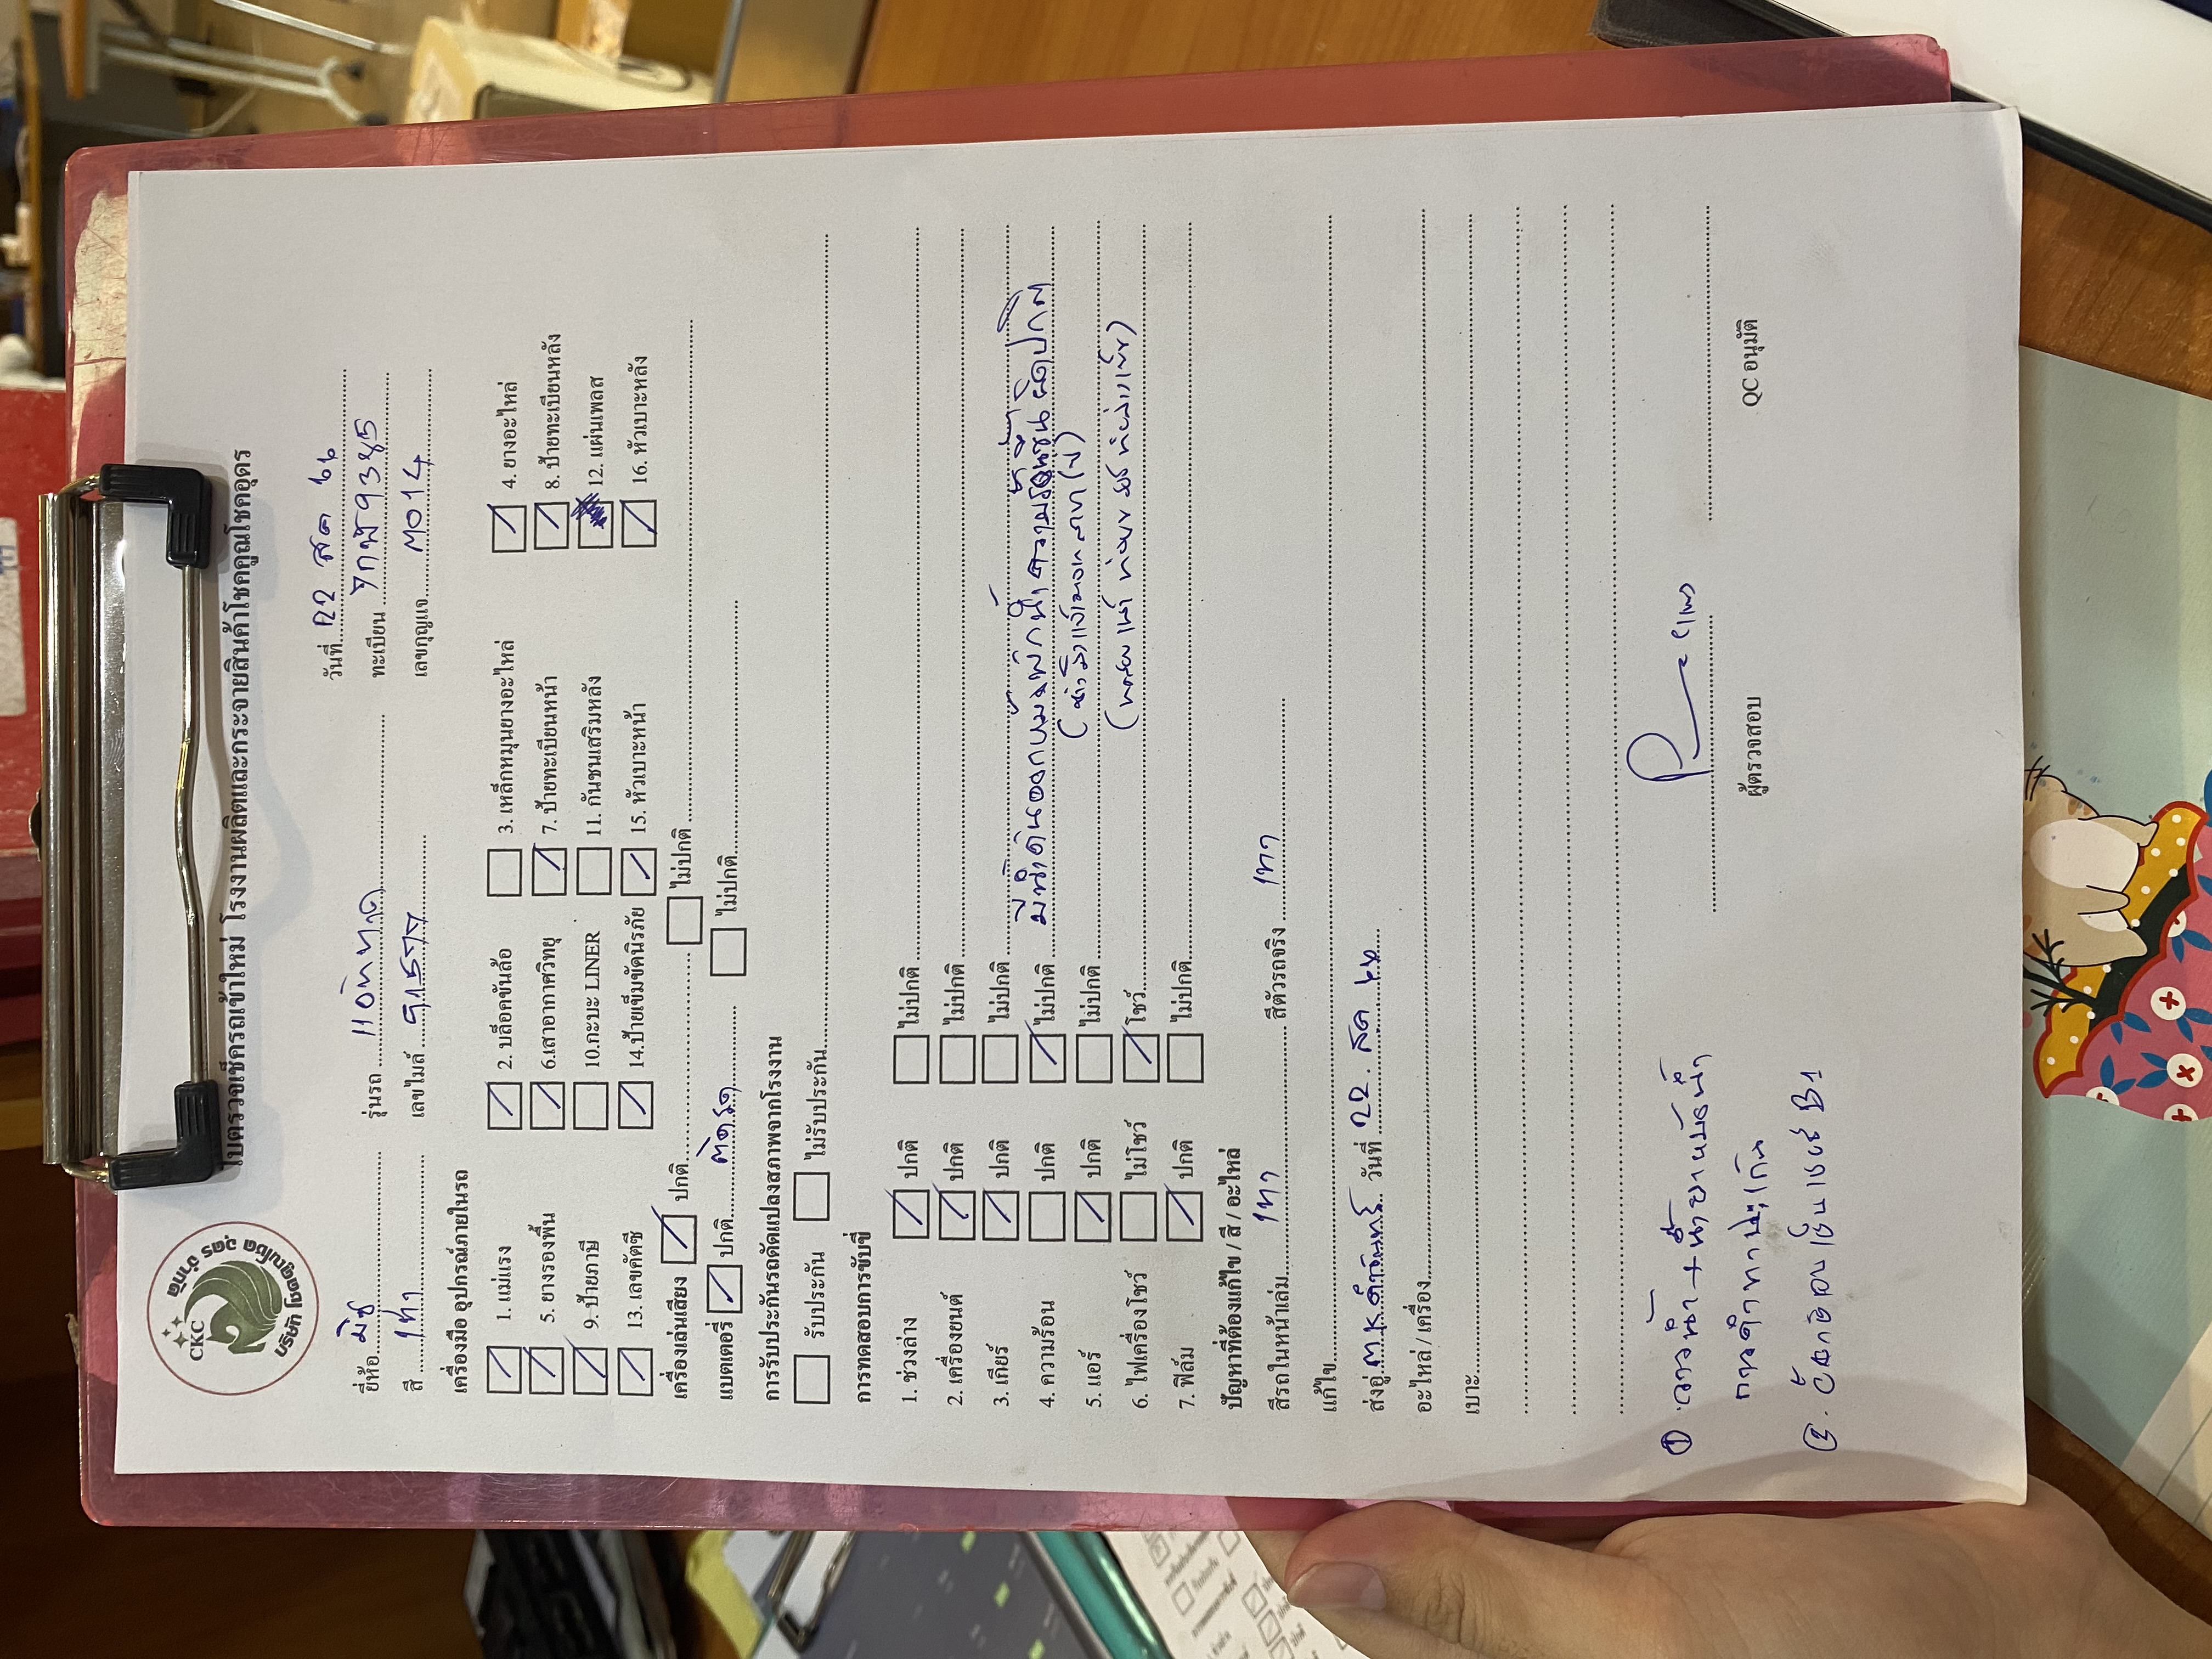 CKC
บริษัท โชคคูณโชค อุดร จำกัด
ใบตรวจเช็ครถเข้าใหม่ โรงงานผลิตและกระจายสินค้าโชคคูณโชคอุดร
วันที่ 22 สค 66
ยี่ห้อ มิซู รุ่นรถ แอททาจ ทะเบียน
สี เทา เลขไมล์ เลขกุญแจ M014
เครื่องมือ อุปกรณ์ภายในรถ
1. แม่แรง 2. บล็อคขันล้อ 3. เหล็กหมุนยางอะไหล่ 4. ยางอะไหล่
5. ยางรองพื้น 6.เสาอากาศวิทยุ 7. ป้ายทะเบียนหน้า 8. ป้ายทะเบียนหลัง
9. ป้ายภาษี 10.กะบะ LINER 11. กันชนเสริมหลัง 12. แผ่นเพลส
13. เลขคัตซี 14.ป้ายเข็มขัดนิรภัย 15. หัวเบาะหน้า 16. หัวเบาะหลัง
เครื่องเล่นเสียง ปกติ ไม่ปกติ
แบตเตอรี่ ปกติ ไม่ปกติ
การรับประกันรถดัดแปลงสภาพจากโรงงาน
รับประกัน ไม่รับประกัน
การทดสอบการขับขี่
1. ช่วงล่าง ปกติ ไม่ปกติ
2. เครื่องยนต์ ปกติ ไม่ปกติ
3. เกียร์ ปกติ ไม่ปกติ
4. ความร้อน ปกติ ไม่ปกติ มีน้ำดันออกหม้อพักน้ำ ความร้อน
5. แอร์ ปกติ ไม่ปกติ
6. ไฟเครื่องโชว์ ไม่โชว์ โชว์
7. ฟิล์ม ปกติ ไม่ปกติ
ปัญหาที่ต้องแก้ไข / สี / อะไหล่
สีรถในหน้าเล่ม เทา สีตัวรถจริง เทา
แก้ไข
ส่งอู่ วันที่ 22 สค 66
อะไหล่ / เครื่อง
เบาะ
① วาวน้ำ + น้ำยาหม้อน้ำ
ผู้ตรวจสอบ QC อนุมัติ